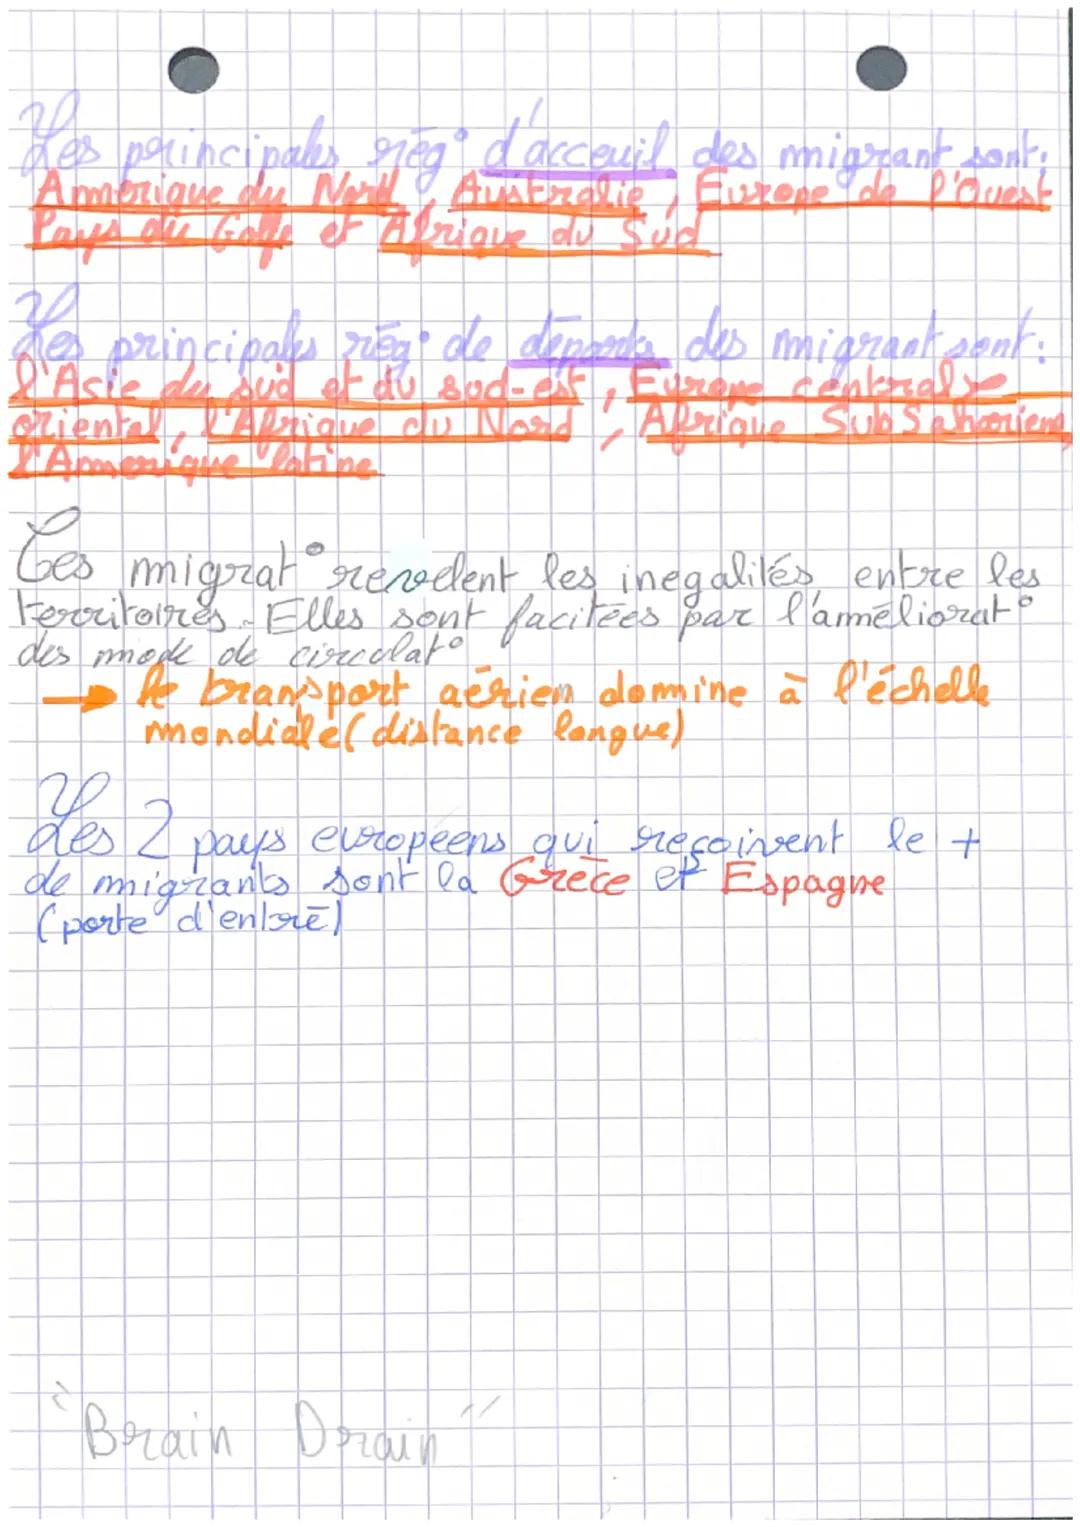 Les principales rég° d'acceuil des migrant sont:
Amérique du Nord, Australie, Europe de l'Ouest
Pays du Golfe et Afrique du Sud
Les principales rég° de départs des migrant sont:
l'Asie du sud et du sud-est, Europe centrale
oriental, l'Afrique du Nord, Afrique SubSaharienne,
l'Amerique latine
Ces migrat° revelent les inegalités entre les
territoires. Elles sont facitées par l'améliorat°
des mode de circulat°
→ le transport aérien domine à l'échelle
mondiale (distance longue)
Les 2 pays européens qui reçoivent le +
de migrants sont la Grèce et Espagne
(porte d'entré)
"Brain Drain"